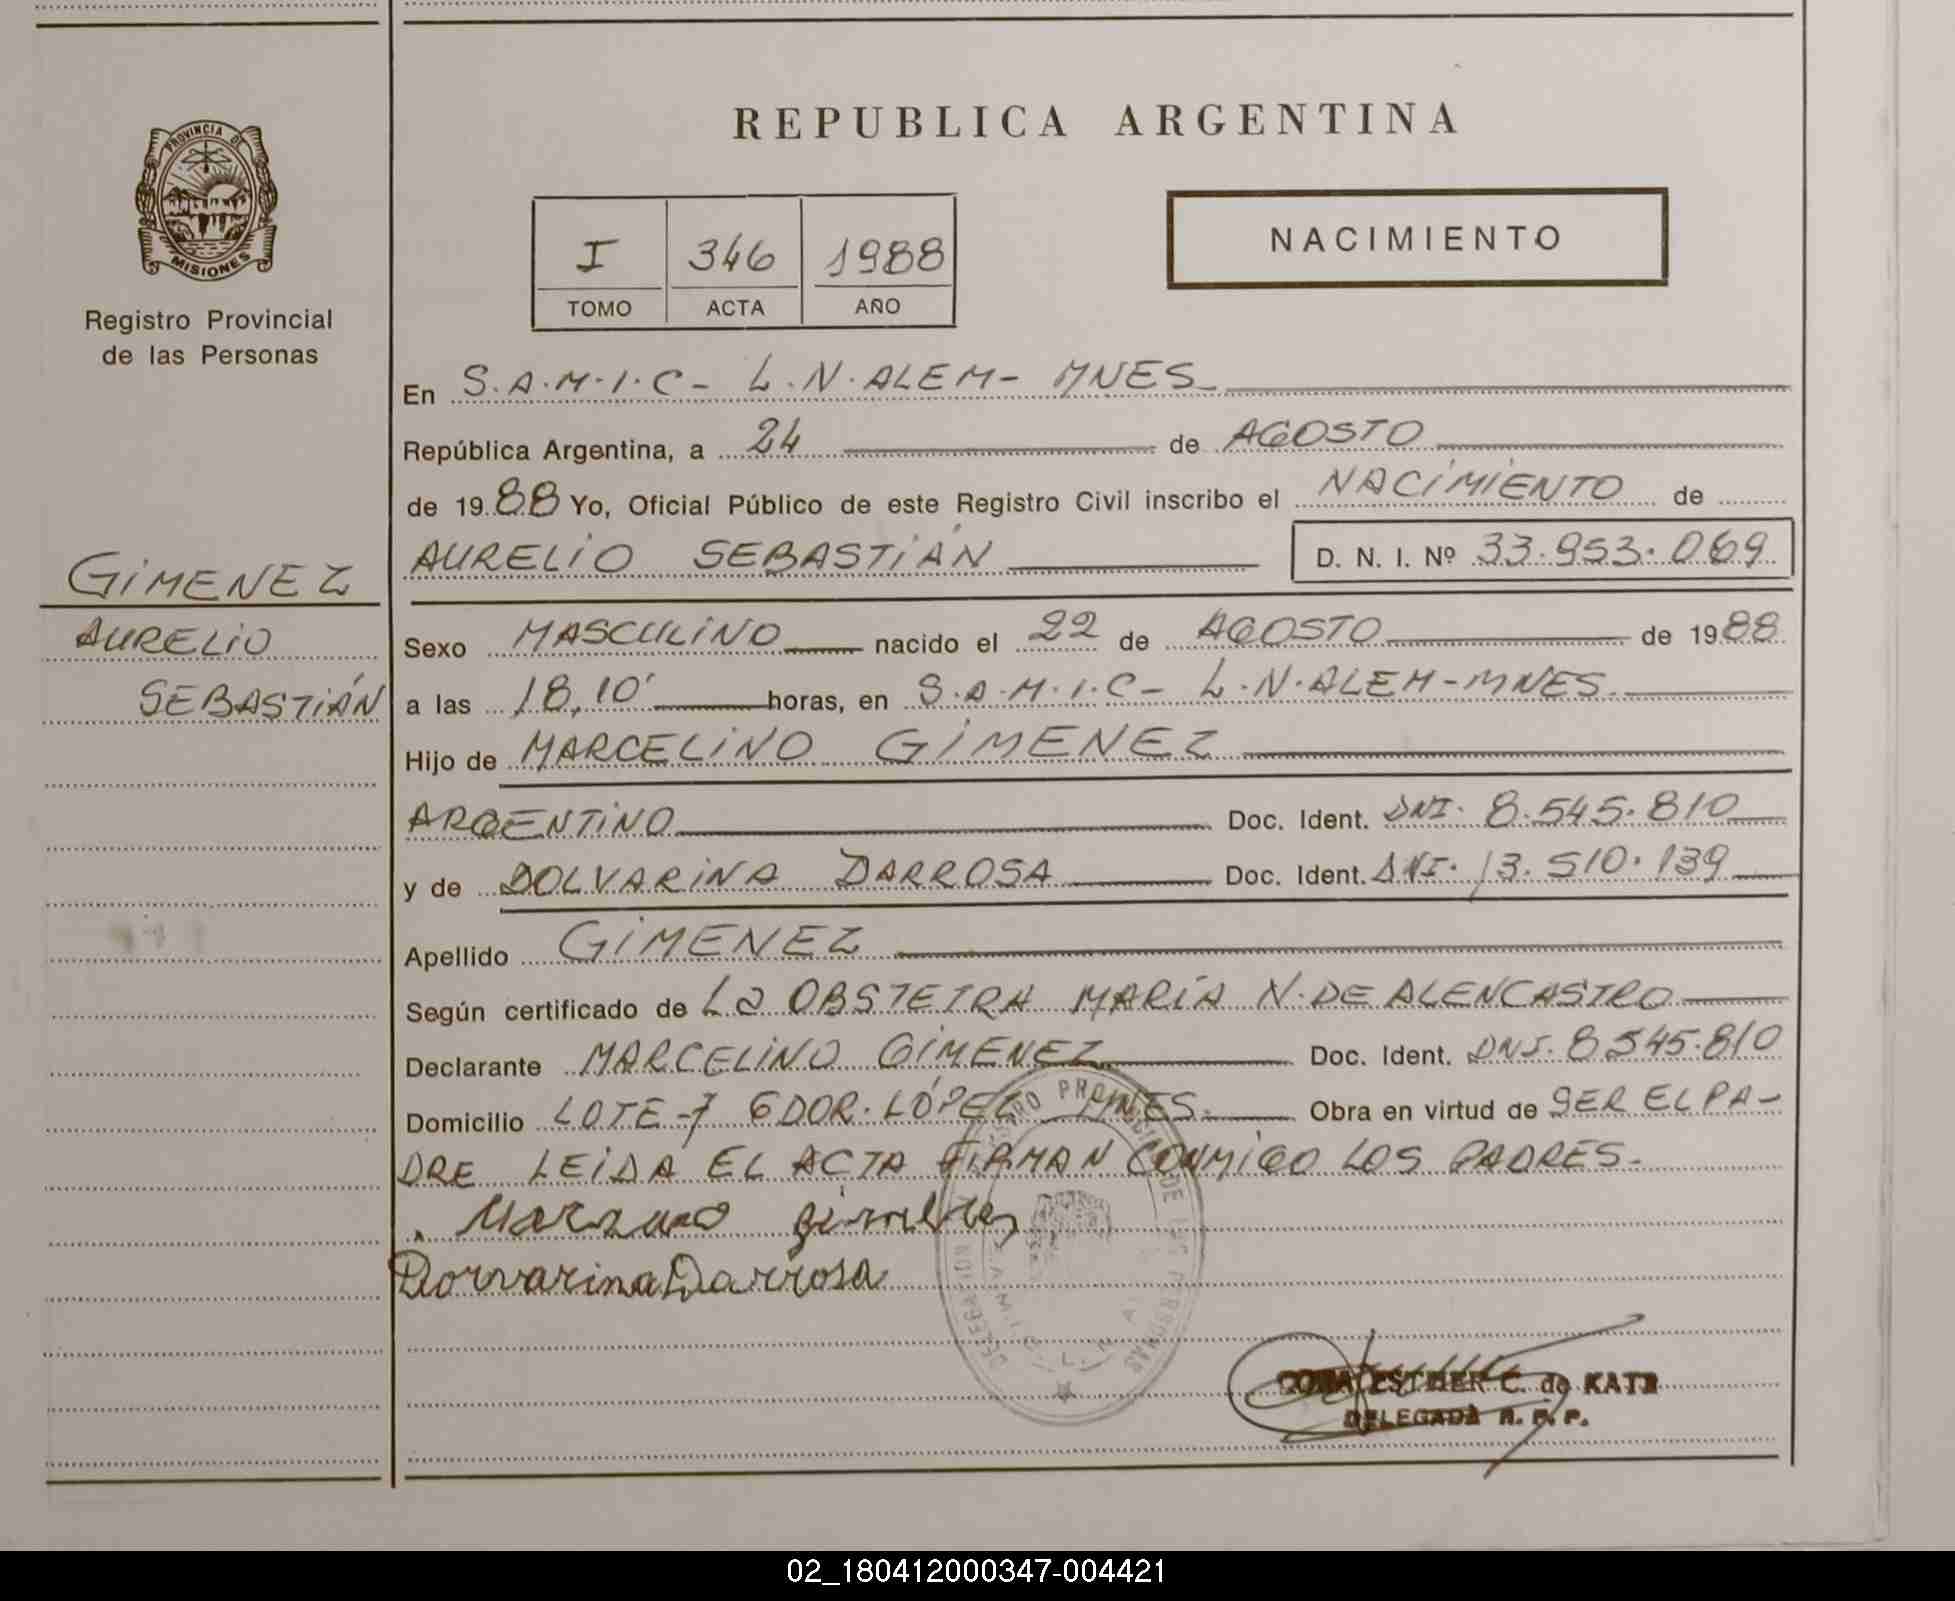 REPUBLICA ARGENTINA
PROVINCIA DE
MISIONES
Registro Provincial
de las Personas
I 346 1988
TOMO ACTA AÑO
NACIMIENTO
En S.A.M.I.C- L.N.ALEM- MNES
República Argentina, a 24 de AGOSTO
de 1988 Yo, Oficial Público de este Registro Civil inscribo el NACIMIENTO de
AURELIO SEBASTIÁN D. N. I. Nº 33.953.069
GIMENEZ
AURELIO
SEBASTIÁN
Sexo MASCULINO nacido el 22 de AGOSTO de 1988
a las 18,10' horas, en S.A.M.I.C- L.N.ALEM-MNES.
Hijo de MARCELINO GIMENEZ
ARGENTINO Doc. Ident. DNI. 8.545.810
y de DOLVARINA DARROSA Doc. Ident. DNI. 13.510.139
Apellido GIMENEZ
Según certificado de La OBSTETRA MARÍA N. DE ALENCASTRO
Declarante MARCELINO GIMENEZ Doc. Ident. DNI. 8545.810
Domicilio LOTE-7 GDOR. LÓPEZ MNES. Obra en virtud de SER EL PA-
DRE LEIDA EL ACTA FIRMAN CONMIGO LOS PADRES.
gimenez
Dorvarina Darrosa
ESTHER C. de KATZ
DELEGADA R. P. P.
02_180412000347-004421